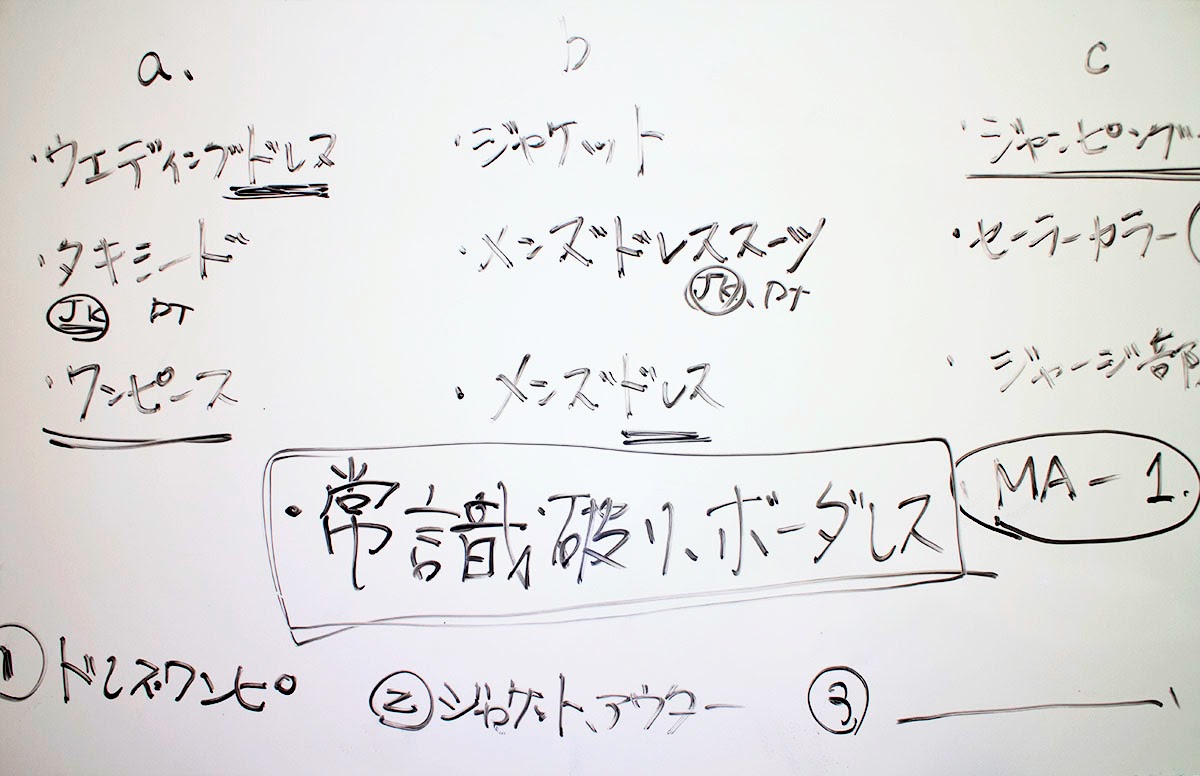 a.
・ウエディングドレス
・タキシード
JK PT
・ワンピース
b
・ジャケット
・メンズドレススーツ
JK、PT
・メンズドレス
c
・ジャンピング
・セーラーカラー(
・ジャージ部
MA-1.
・常識破り、ボーダレス
① ドレスワンピ
② ジャケット、アウター
③